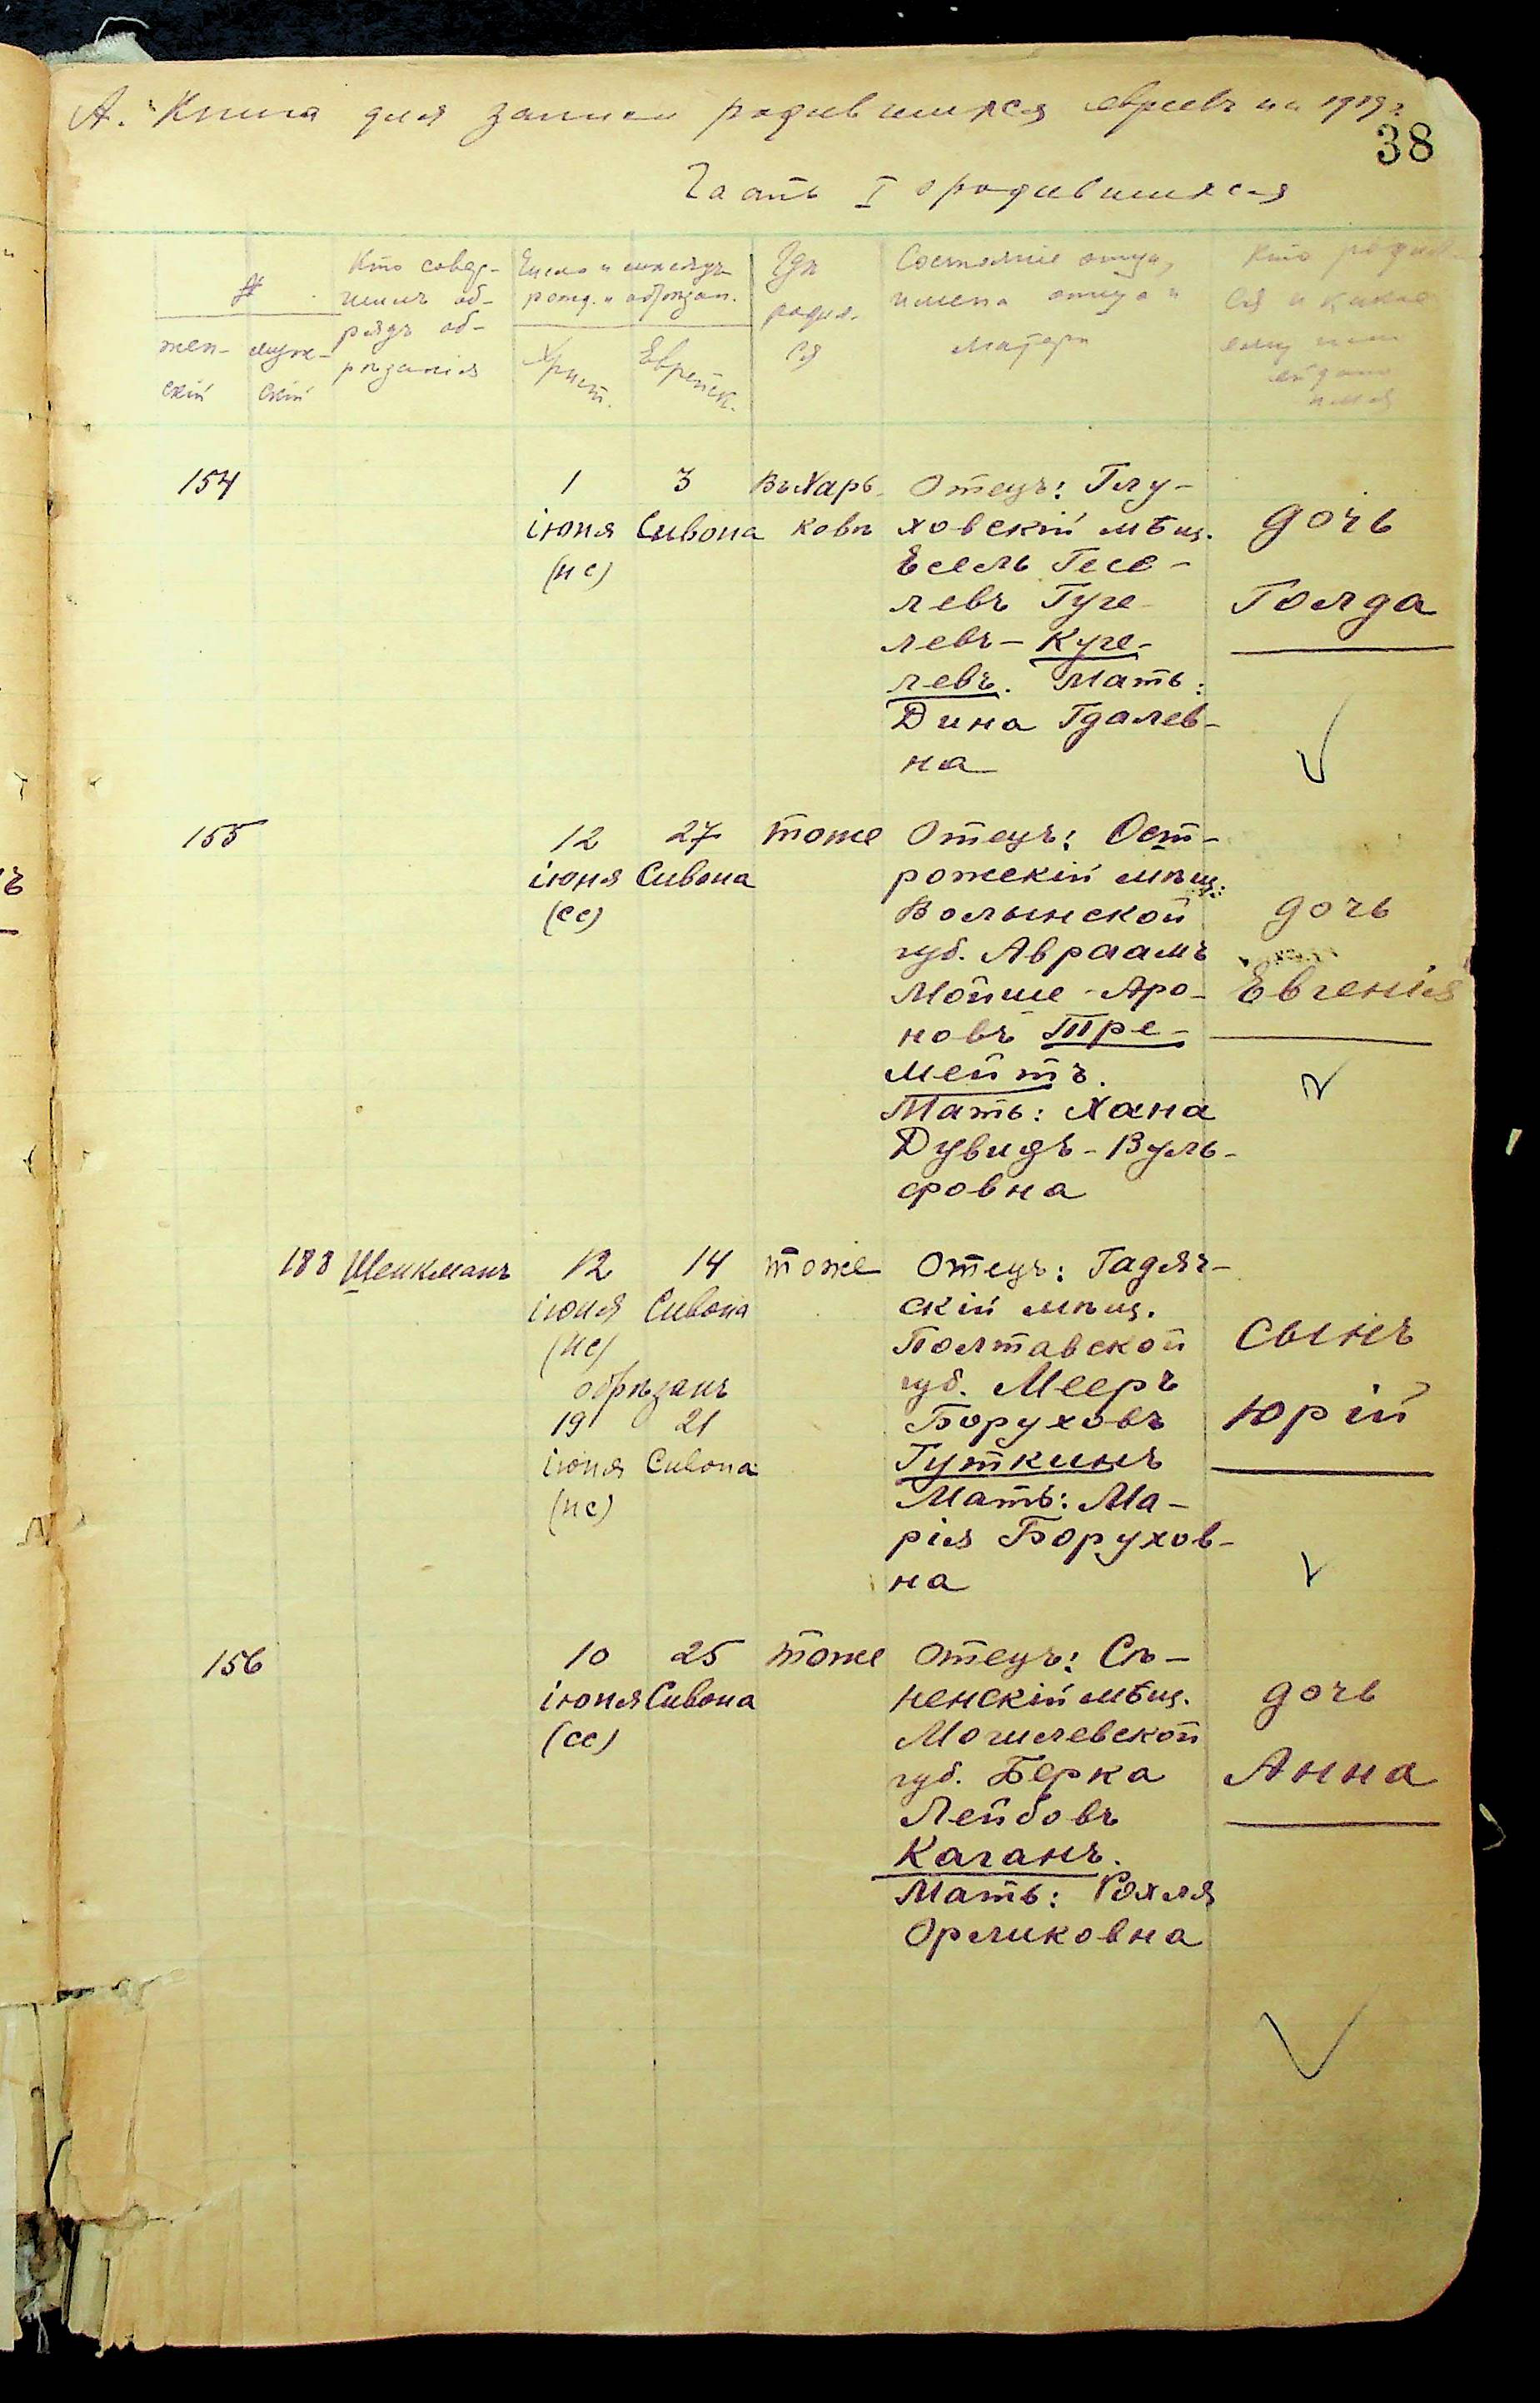 А. Книга для записи родившихся евреевъ на 1919 г.
38
Часть I о родившихся
№
жен-
скій
муж-
скій
Кто совер-
шилъ об-
рядъ об-
рѣзанія
Число и мѣсяцъ
рожд. и обрѣзан.
Христ.
Еврейск.
Гдѣ
родил-
ся
Состояніе отца,
имена отца и
матери
Кто родил-
ся и какое
ему или
ей дано
имя
154
1
іюня
(нс)
3
Сивона
Въ Харь-
ковѣ
Отецъ: Глу-
ховскій мѣщ.
Есель Гесе-
левъ Гуге-
левъ - Куге-
левъ. Мать:
Дина Гдалев-
на
дочь
Голда
155
12
іюня
(сс)
27
Сивона
тоже
Отецъ: Ост-
рожскій мѣщ.
Волынской
губ. Авраамъ
Мойше - Аро-
новъ Тре-
мейтъ.
Мать: Хана
Дувидъ - Вуль-
фовна
дочь
Евгенія
188
Шейкманъ
12
іюня
(нс)
14
Сивона
обрѣзанъ
19
іюня
(нс)
21
Сивона
тоже
Отецъ: Гадяч-
скій мѣщ.
Полтавской
губ. Мееръ
Боруховъ
Гуткинъ
Мать: Ма-
рія Борухов-
на
сынъ
Юрій
156
10
іюня
(сс)
25
Сивона
тоже
Отецъ: Сѣ-
ненскій мѣщ.
Могилевской
губ. Берка
Лейбовъ
Каганъ.
Мать: Рохля
Орликовна
дочь
Анна